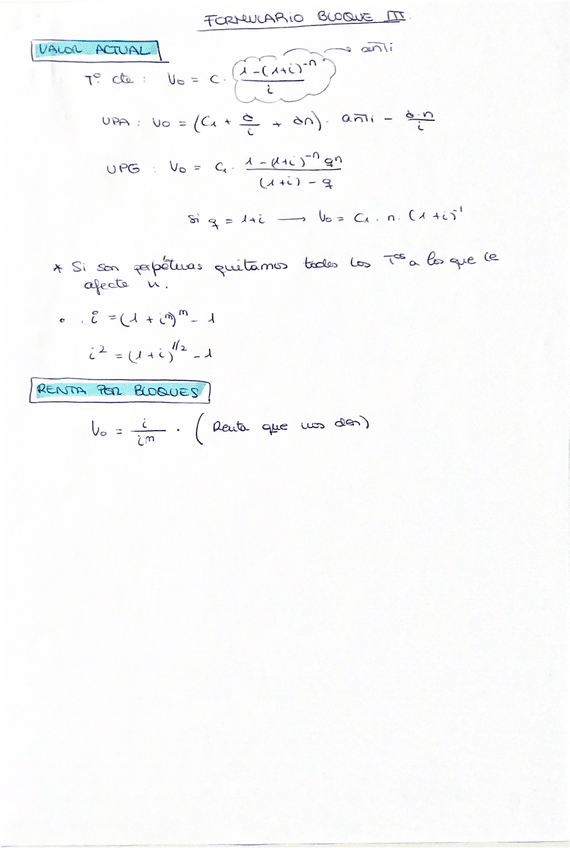 FORMULARIO BLOQUE III
VALOR ACTUAL
Tº cte : V₀ = C · (1-(1+i)⁻ⁿ)/i → an̅i
UPA : V₀ = (C₁ + δ/i + δn) · an̅i - δ·n/i
UPG : V₀ = C₁ · (1-(1+i)⁻ⁿ qⁿ)/((1+i) - q)
Si q = 1+i → V₀ = C₁ · n · (1+i)⁻¹
* Si son perpétuas quitamos todos los Tᵒˢ a los que le
afecte n.
• . i = (1 + iᵐ)ᵐ - 1
i² = (1+i)^1/2 - 1
RENTA POR BLOQUES
V₀ = i/iᵐ · ( Renta que nos den)